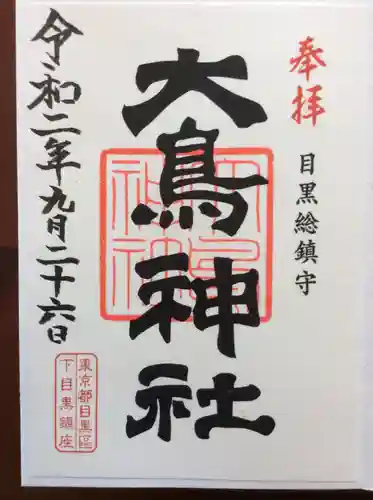 奉拝
目黒総鎮守
大鳥神社
令和二年九月二十六日
東京都目黒區
下目黒鎮座
大鳥神社